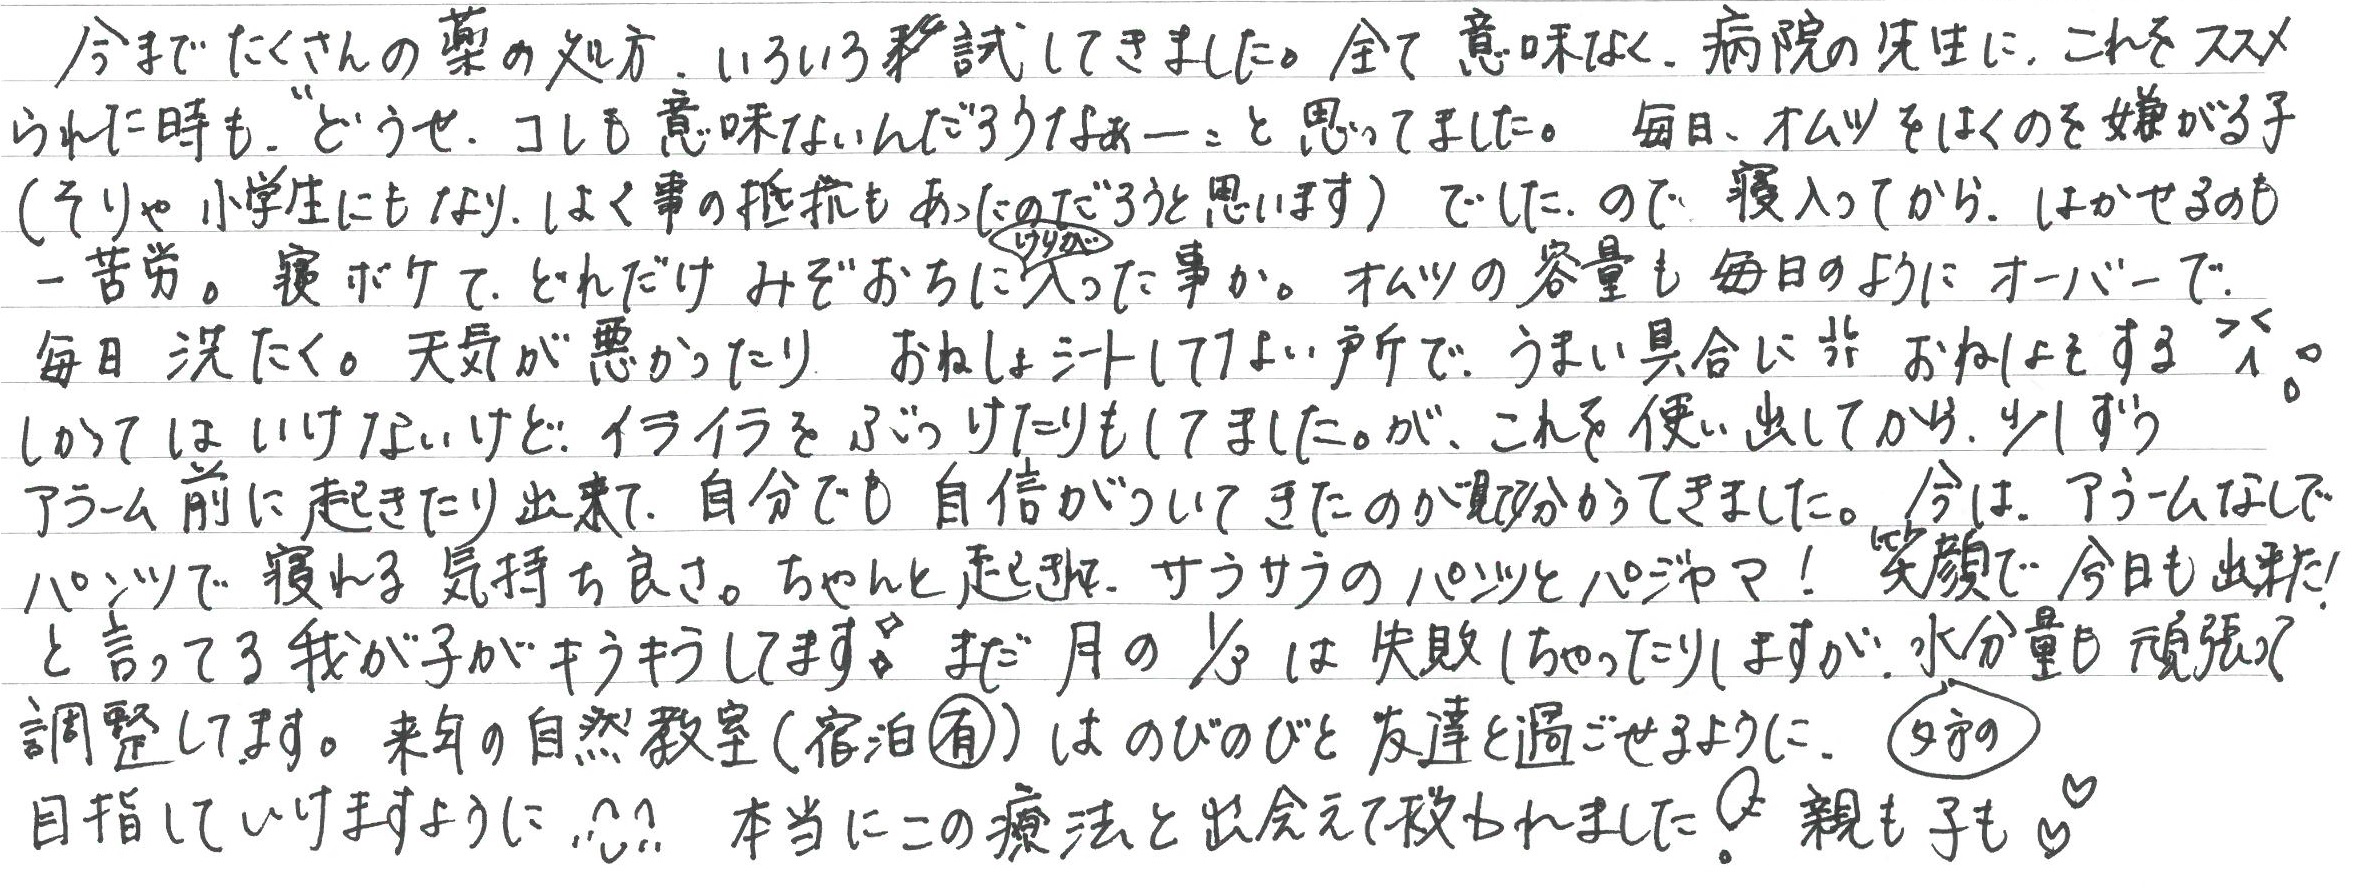 今までたくさんの薬の処方、いろいろ試してきました。全て意味なく、病院の先生に、これをススメ
られた時も、“どうせ、コレも意味ないんだろうなぁー〟と思ってました。 毎日、オムツをはくのを嫌がる子
(そりゃ小学生にもなり、はく事の抵抗もあったのだろうと思います)でした、ので、寝入ってから、はかせるのも
一苦労。寝ボケて、どれだけみぞおちにけりが入った事か。オムツの容量も毎日のようにオーバーで、
毎日洗たく。天気が悪かったり、おねしょシートしてない所で、うまい具合におねしょをする><。
しかってはいけないけど、イライラをぶつけたりもしてました。が、これを使い出してから、少しずつ
アラーム前に起きたり出来て、自分でも自信がついてきたのが見て分かってきました。今は、アラームなしで
パンツで寝れる気持ち良さ。ちゃんと起きれて、サラサラのパンツとパジャマ!笑顔で今日も出来た!
と言ってる我が子がキラキラしてます。まだ月の1/3は失敗しちゃったりしますが、水分量も頑張って
調整してます。来年の自然教室(宿泊有)はのびのびと友達と過ごせるように、夕方の
目指していけますように 本当にこの療法と出会えて救われました!親も子も♡♡